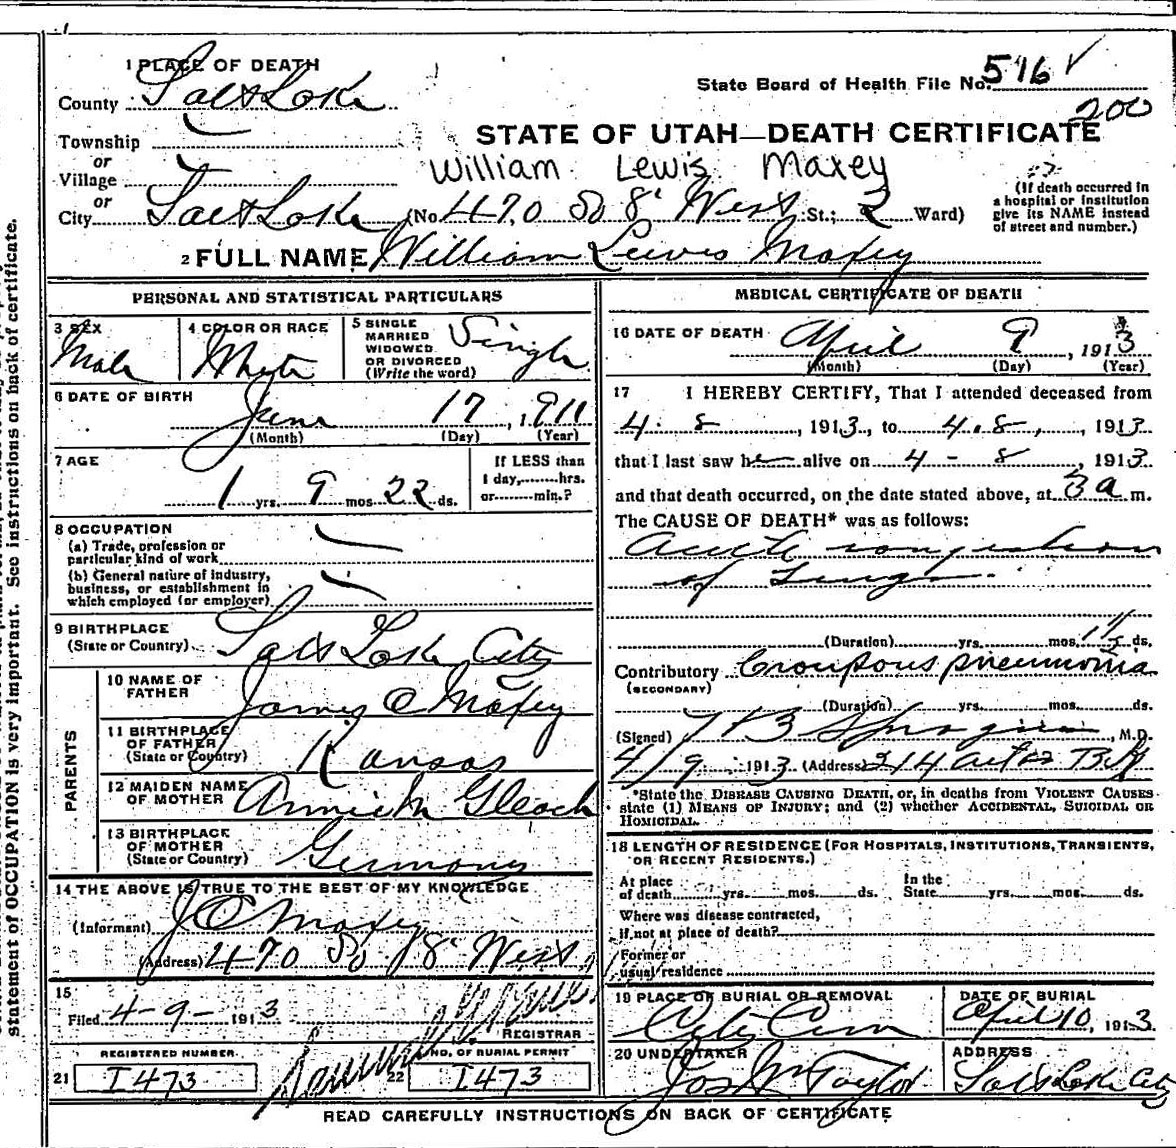 1 PLACE OF DEATH
County Salt Lake
State Board of Health File No. 516
200
STATE OF UTAH—DEATH CERTIFICATE
Township
or
Village
or
City Salt Lake
William Lewis Maxey
(No. 470 So 8' West St.; 2 Ward)
(If death occurred in
a hospital or institution
give its NAME instead
of street and number.)
2 FULL NAME William Lewis Maxey
PERSONAL AND STATISTICAL PARTICULARS
3 SEX
Male
4 COLOR OR RACE
White
5 SINGLE
MARRIED
WIDOWED
OR DIVORCED
(Write the word)
Single
6 DATE OF BIRTH
June 17, 1911
(Month) (Day) (Year)
7 AGE
1 yrs. 9 mos. 22 ds.
If LESS than
1 day,........hrs.
or.........min.?
8 OCCUPATION
(a) Trade, profession or
particular kind of work
(b) General nature of industry,
business, or establishment in
which employed (or employer)
9 BIRTHPLACE
(State or Country) Salt Lake City
PARENTS
10 NAME OF
FATHER
James C Maxey
11 BIRTHPLACE
OF FATHER
(State or Country) Kansas
12 MAIDEN NAME
OF MOTHER Annie M
13 BIRTHPLACE
OF MOTHER
(State or Country) Germany
14 THE ABOVE IS TRUE TO THE BEST OF MY KNOWLEDGE
(Informant) J C Maxey
(Address) 470 So 8' West
15
Filed 4-9- 1913
REGISTRAR
REGISTERED NUMBER
21 I473
NO. OF BURIAL PERMIT
22 I473
MEDICAL CERTIFICATE OF DEATH
16 DATE OF DEATH April 9, 1913
(Month) (Day) (Year)
17 I HEREBY CERTIFY, That I attended deceased from
4. 8, 1913, to 4. 8, 1913
that I last saw h alive on 4 - 8, 1913
and that death occurred, on the date stated above, at 3 a m.
The CAUSE OF DEATH* was as follows:
Acute congestion
of Lungs
(Duration) yrs. mos. ds.
Contributory Croupous pneumonia
(SECONDARY)
(Duration) yrs. mos. ds.
(Signed) M.D.
4/9 1913 (Address) 214
*State the DISEASE CAUSING DEATH, or, in deaths from VIOLENT CAUSES
state (1) MEANS OF INJURY; and (2) whether ACCIDENTAL, SUICIDAL OR
HOMICIDAL.
18 LENGTH OF RESIDENCE (FOR HOSPITALS, INSTITUTIONS, TRANSIENTS,
OR RECENT RESIDENTS.)
At place
of death yrs. mos. ds.
In the
State yrs. mos. ds.
Where was disease contracted,
if not at place of death?
Former or
usual residence
19 PLACE OF BURIAL OR REMOVAL
City Cem
DATE OF BURIAL
April 10, 1913
20 UNDERTAKER
Jos Wm Taylor
ADDRESS
Salt Lake City
READ CAREFULLY INSTRUCTIONS ON BACK OF CERTIFICATE
statement of OCCUPATION is very important. See instructions on back of certificate.